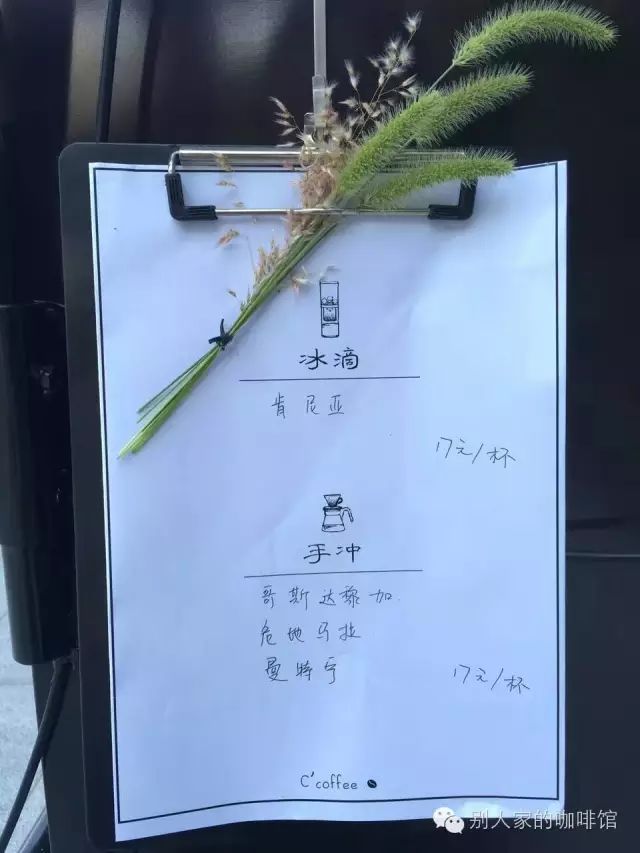 冰滴
肯尼亚
17元/杯
手冲
哥斯达黎加
危地马拉
曼特宁
17元/杯
C'coffee
别人家的咖啡馆